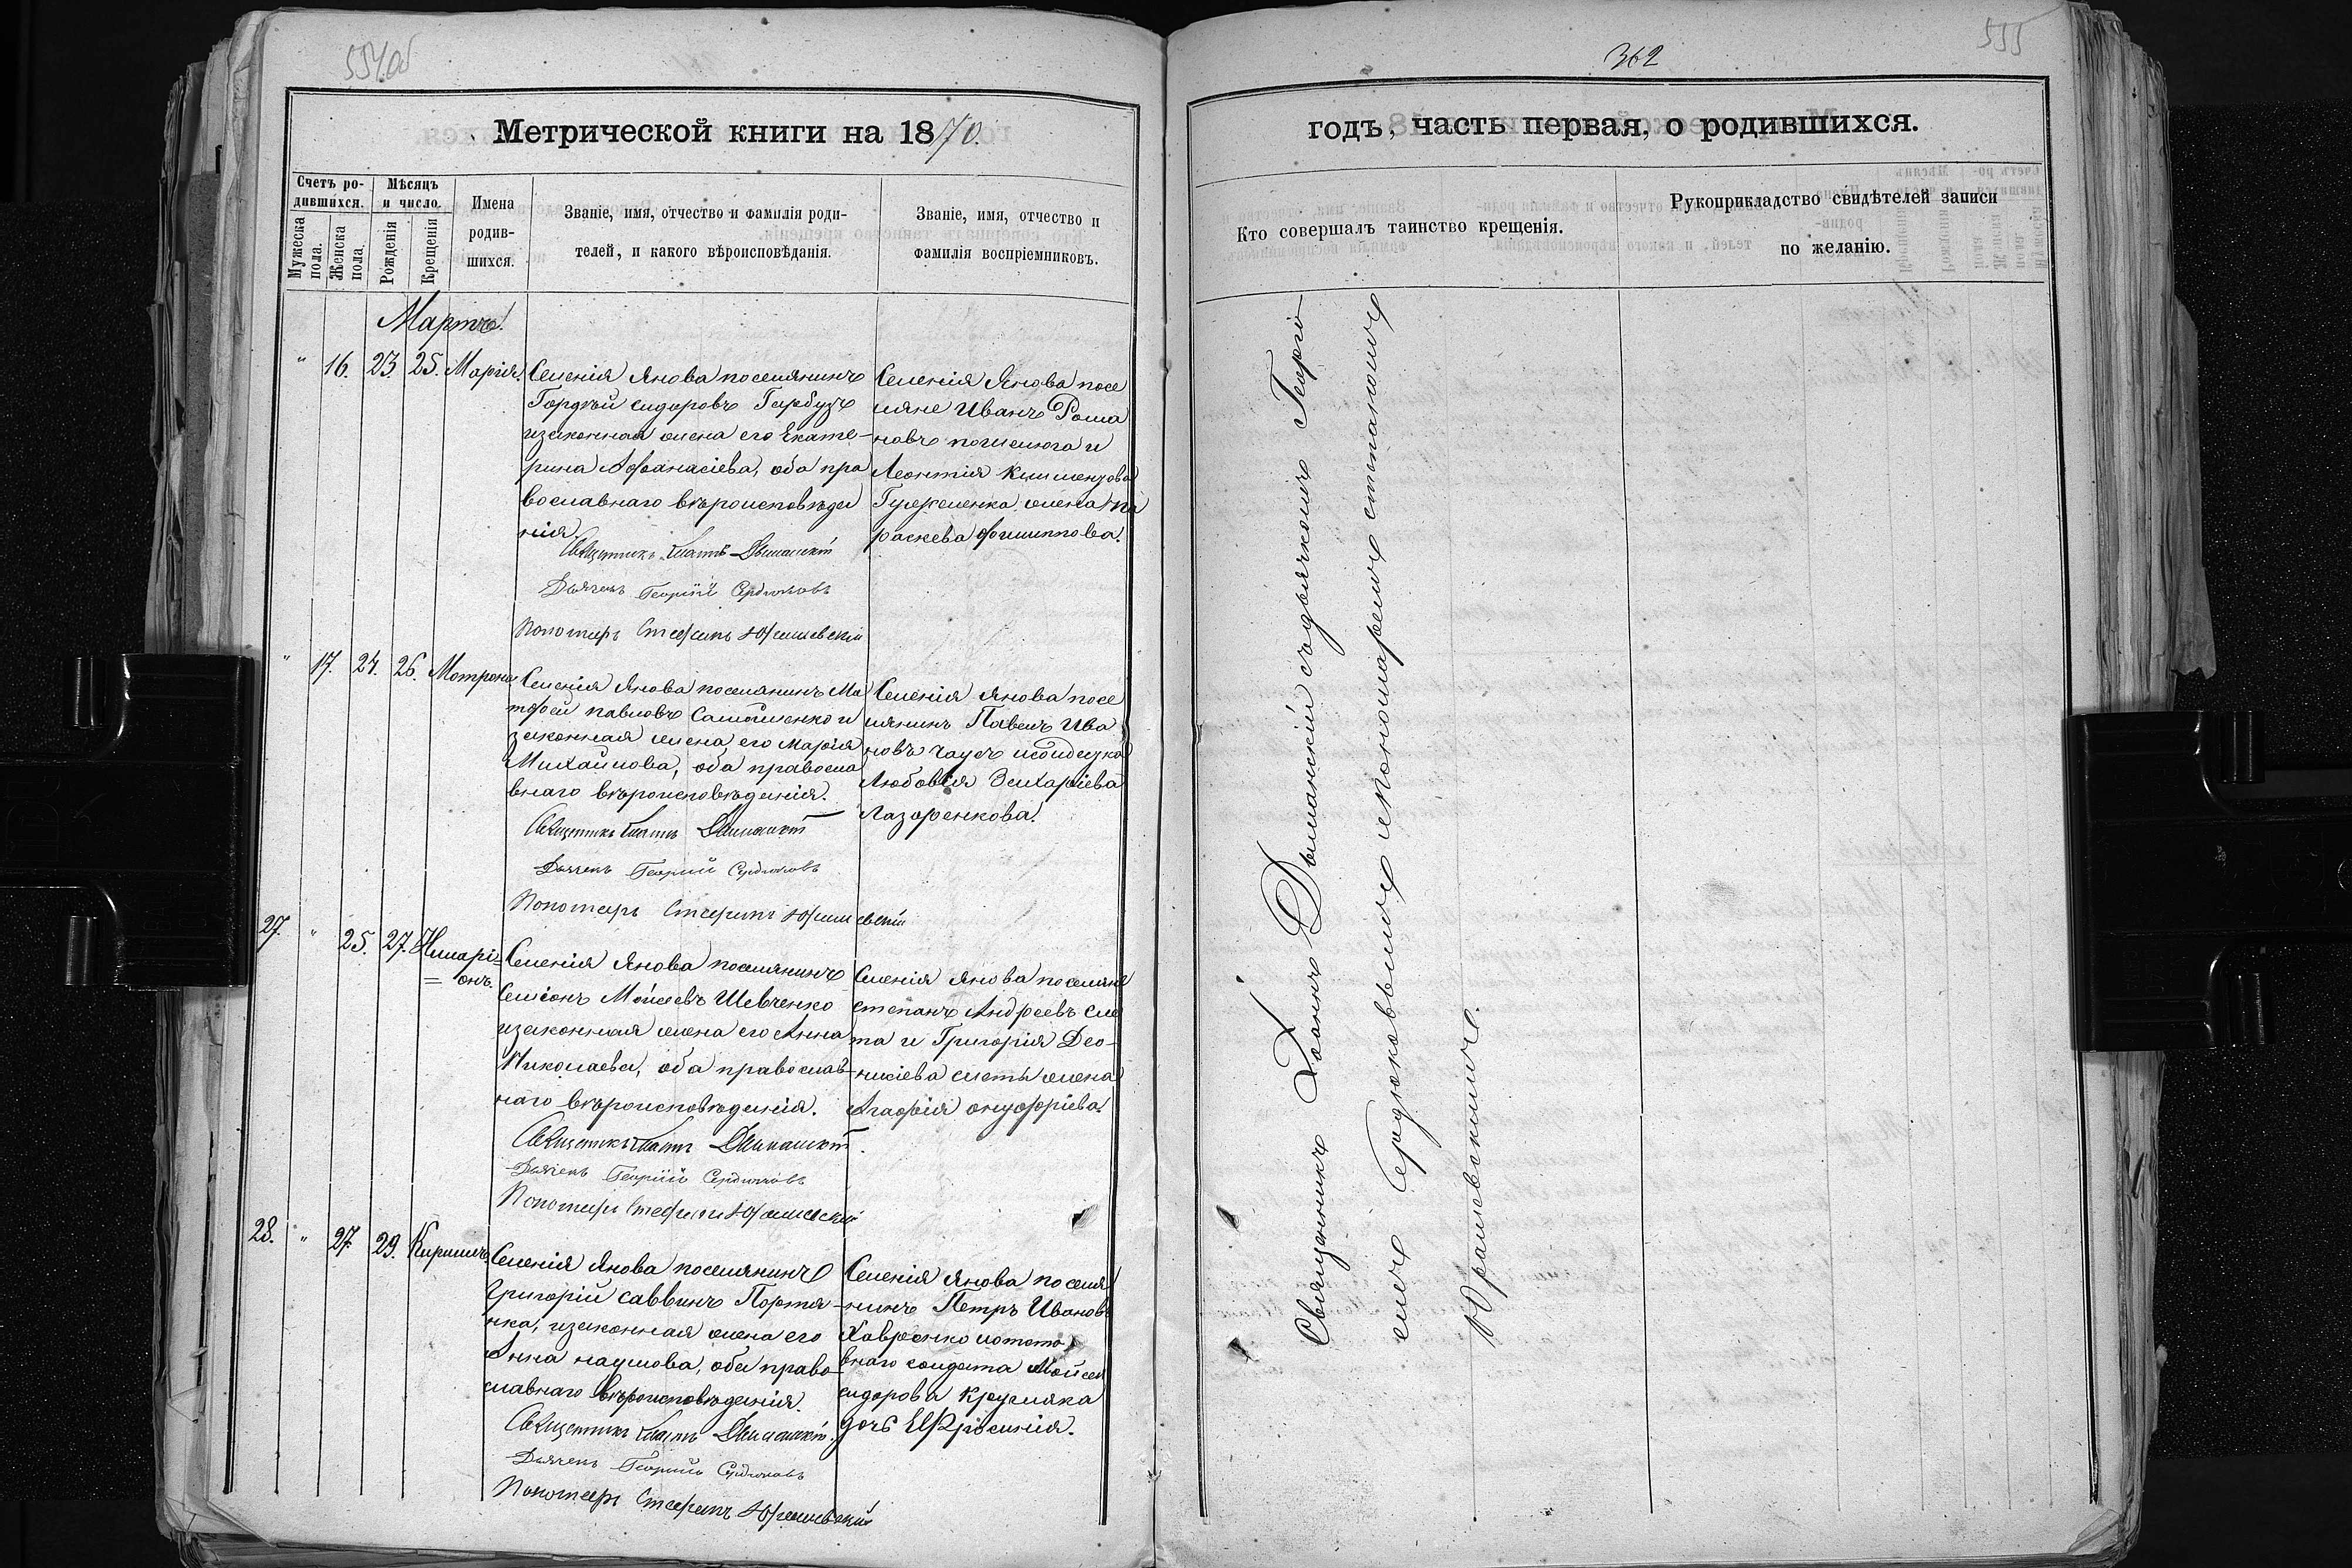 554об
Метрической книги на 1870.
Счетъ ро-
дившихся.
Мѣсяцъ
и число.
Мужеска
пола.
Женска
пола.
Рожденія
Крещенія
Имена
родив-
шихся.
Званіе, имя, отчество и фамилія роди-
телей, и какого вѣроисповѣданія.
Званіе, имя, отчество и
фамилія воспріемниковъ.
Мартъ.
" 16. 23. 25. Марія.
Селенія Янова поселянинъ
Гордѣй сидоровъ Гарбузъ
изаконная жена его Екате-
рина Афанасіева, оба пра
вославнаго вѣроисповѣда
нія.
Священникъ Іоаннъ Дыманскій
Дьячекъ Георгій Сердюковъ
Пономарь Стефанъ Юрашевскій
Селенія Янова посе
ляне Иванъ Рома
новъ и
Леонтія Климентова
жена Па
раскева Филиппова.
" 17. 24. 26. Матрона
Селенія Янова поселянинъ Ма
тфей павловъ Самойленко и
законная жена его Марія
Михайлова, оба правосла
внаго вѣроисповѣданія.
Священникъ Іоаннъ Дыманскій
Дьячекъ Георгій Сердюковъ
Пономарь Стефанъ Юрашевскій
Селенія Янова посе
лянинъ Павелъ Ива
новъ чаусъ
Любовія Захаріева
Лазоренкова.
27. " 25. 27. Иларі=
=онъ.
Селенія Янова поселянинъ
Симеонъ Мойсеевъ Шевченко
изаконная жена его Анна
Николаева, оба православ-
наго вѣроисповѣданія.
Священникъ Іоаннъ Дыманскій
Дьячекъ Георгій Сердюковъ
Пономарь Стефанъ Юрашевскій
Селенія Янова поселяне
степанъ Андреевъ
и Григорія Део-
нисіева жена
Агафія онуфріева.
28. " 27. 29. Кирилъ.
Селенія Янова поселянинъ
Григорій саввинъ Портя
нка, изаконная жена его
Анна наумова, оба право-
славнаго Вѣроисповѣданія.
Священникъ Іоаннъ Дыманскій
Дьячекъ Георгій Сердюковъ
Пономарь Стефанъ Юрашевскій
Селенія Янова поселя
-нинъ Петръ Ивановъ
Хавренко
солдата Мойсея
сидорова Кругляка
дочь Ефросинія.
362
555
годъ, часть первая, о родившихся.
Кто совершалъ таинство крещенія.
Рукоприкладство свидѣтелей записи
по желанію.
Священникъ Іоаннъ Дыманскій съдьячкомъ Георгі
емъ Сердюковымъ ипономаремъ стефаномъ
Юрашевскимъ.